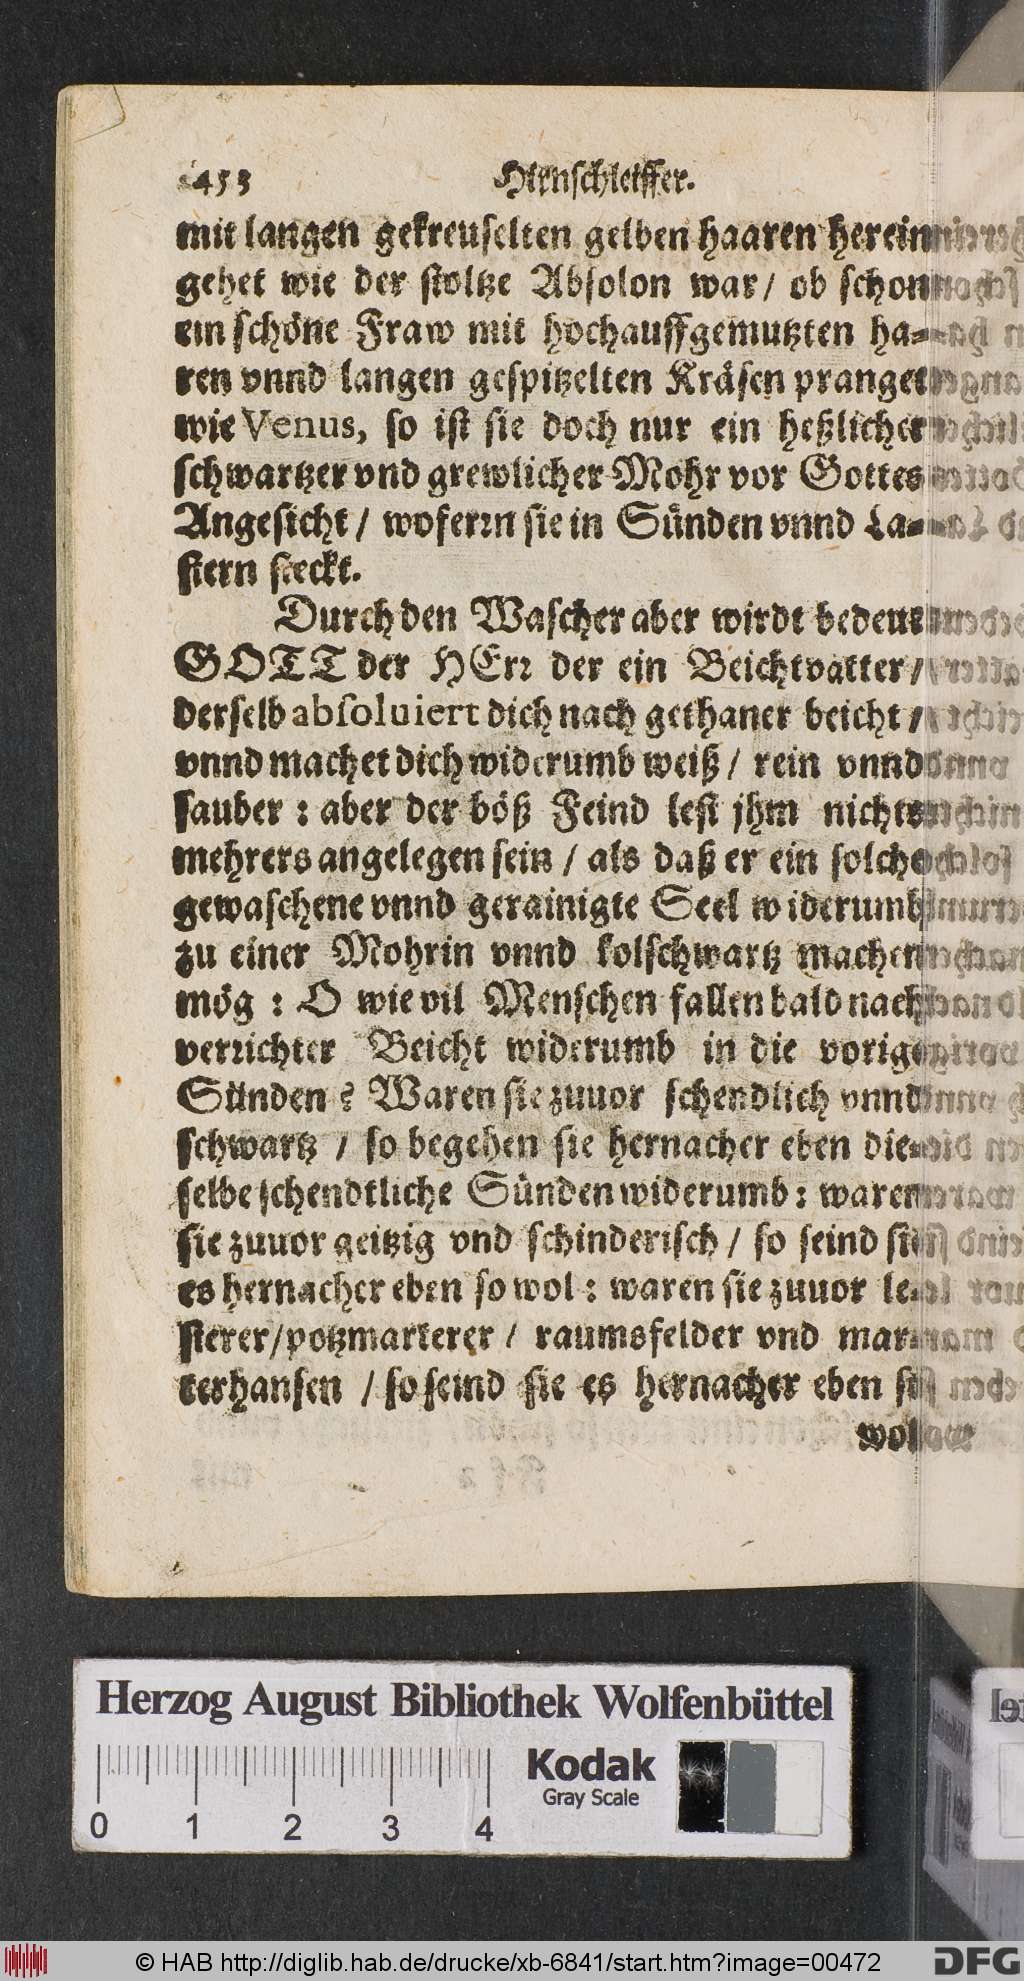 453 Hirnschleiffer.
mit langen gekreuselten gelben haaren herein
gehet wie der stoltze Absolon war / ob schon
ein schöne Fraw mit hochauffgemutzten ha-
ren vnnd langen gespitzelten Kräsen pranget
wie Venus, so ist sie doch nur ein heßlicher
schwartzer vnd grewlicher Mohr vor Gottes
Angesicht / woferrn sie in Sünden vnnd La-
stern steckt.
Durch den Wascher aber wirdt bedeut
GOTT der HErr der ein Beichtvatter /
derselb absoluiert dich nach gethaner beicht /
vnnd machet dich widerumb weiß / rein vnnd
sauber : aber der böß Feind lest jhm nichts
mehrers angelegen sein / als daß er ein solche
gewaschene vnnd gerainigte Seel widerumb
zu einer Mohrin vnnd kolschwartz machen
mög : O wie vil Menschen fallen bald nach
verrichter Beicht widerumb in die vorige
Sünden ? Waren sie zuuor schendlich vnnd
schwartz / so begehen sie hernacher eben die-
selbe schendtliche Sünden widerumb : waren
sie zuuor geitzig vnd schinderisch / so seind sie
es hernacher eben so wol : waren sie zuuor le-
sterer / potzmarterer / raumsfelder vnd mar-
terhansen / so seind sie es hernacher eben so
wol
Herzog August Bibliothek Wolfenbüttel
Kodak
Gray Scale
0 1 2 3 4
© HAB http://diglib.hab.de/drucke/xb-6841/start.htm?image=00472
DFG